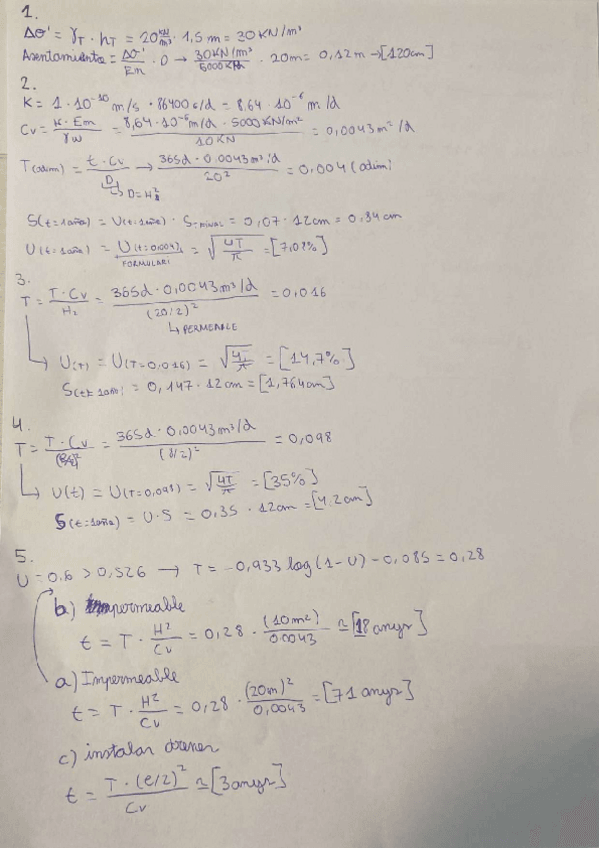 1.
Δσ' = γT · hT = 20 KN/m³ · 1,5 m = 30 KN/m²
Asentamiento = Δσ'/Em · D → 30 KN/m²/5000 KPa · 20m = 0,12m → [120cm]
2.
K = 1 · 10⁻¹⁰ m/s · 86400 s/d = 8,64 · 10⁻⁶ m/d
Cv = K · Em/γw = 8,64 · 10⁻⁶ m/d · 5000 KN/m²/10 KN = 0,0043 m²/d
T(adim) = t · Cv/D → 365d · 0,0043 m²/d/20² = 0,004 (adim)
↳ D = H²
S(t=1año) = U(t=1año) · S = 0,07 · 12cm = 0,84 cm
U(t=1año) = U(t=0,004) = √4T/π = [7,02%]
FORMULARI
3.
T = T · Cv/H² = 365d · 0,0043 m²/d/(20/2)² = 0,016
↳ PERMEABLE
↳ U(T) = U(T=0,016) = √4T/π = [14,7%]
S(t=1año) = 0,147 · 12cm = [1,764cm]
4.
T = T · Cv/(e/2)² = 365d · 0,0043 m²/d/(8/2)² = 0,098
↳ U(t) = U(T=0,098) = √4T/π = [35%]
S(t=1año) = U · S = 0,35 · 12cm = [4,2cm]
5.
U = 0,6 > 0,526 → T = -0,933 log(1-U) - 0,085 = 0,28
b) permeable
t = T · H²/Cv = 0,28 · (10m²)/0,0043 ≃ [18 anys]
a) Impermeable
t = T · H²/Cv = 0,28 · (20m)²/0,0043 = [71 anys]
c) instalar drenes
t = T · (e/2)²/Cv ≃ [3 anys]